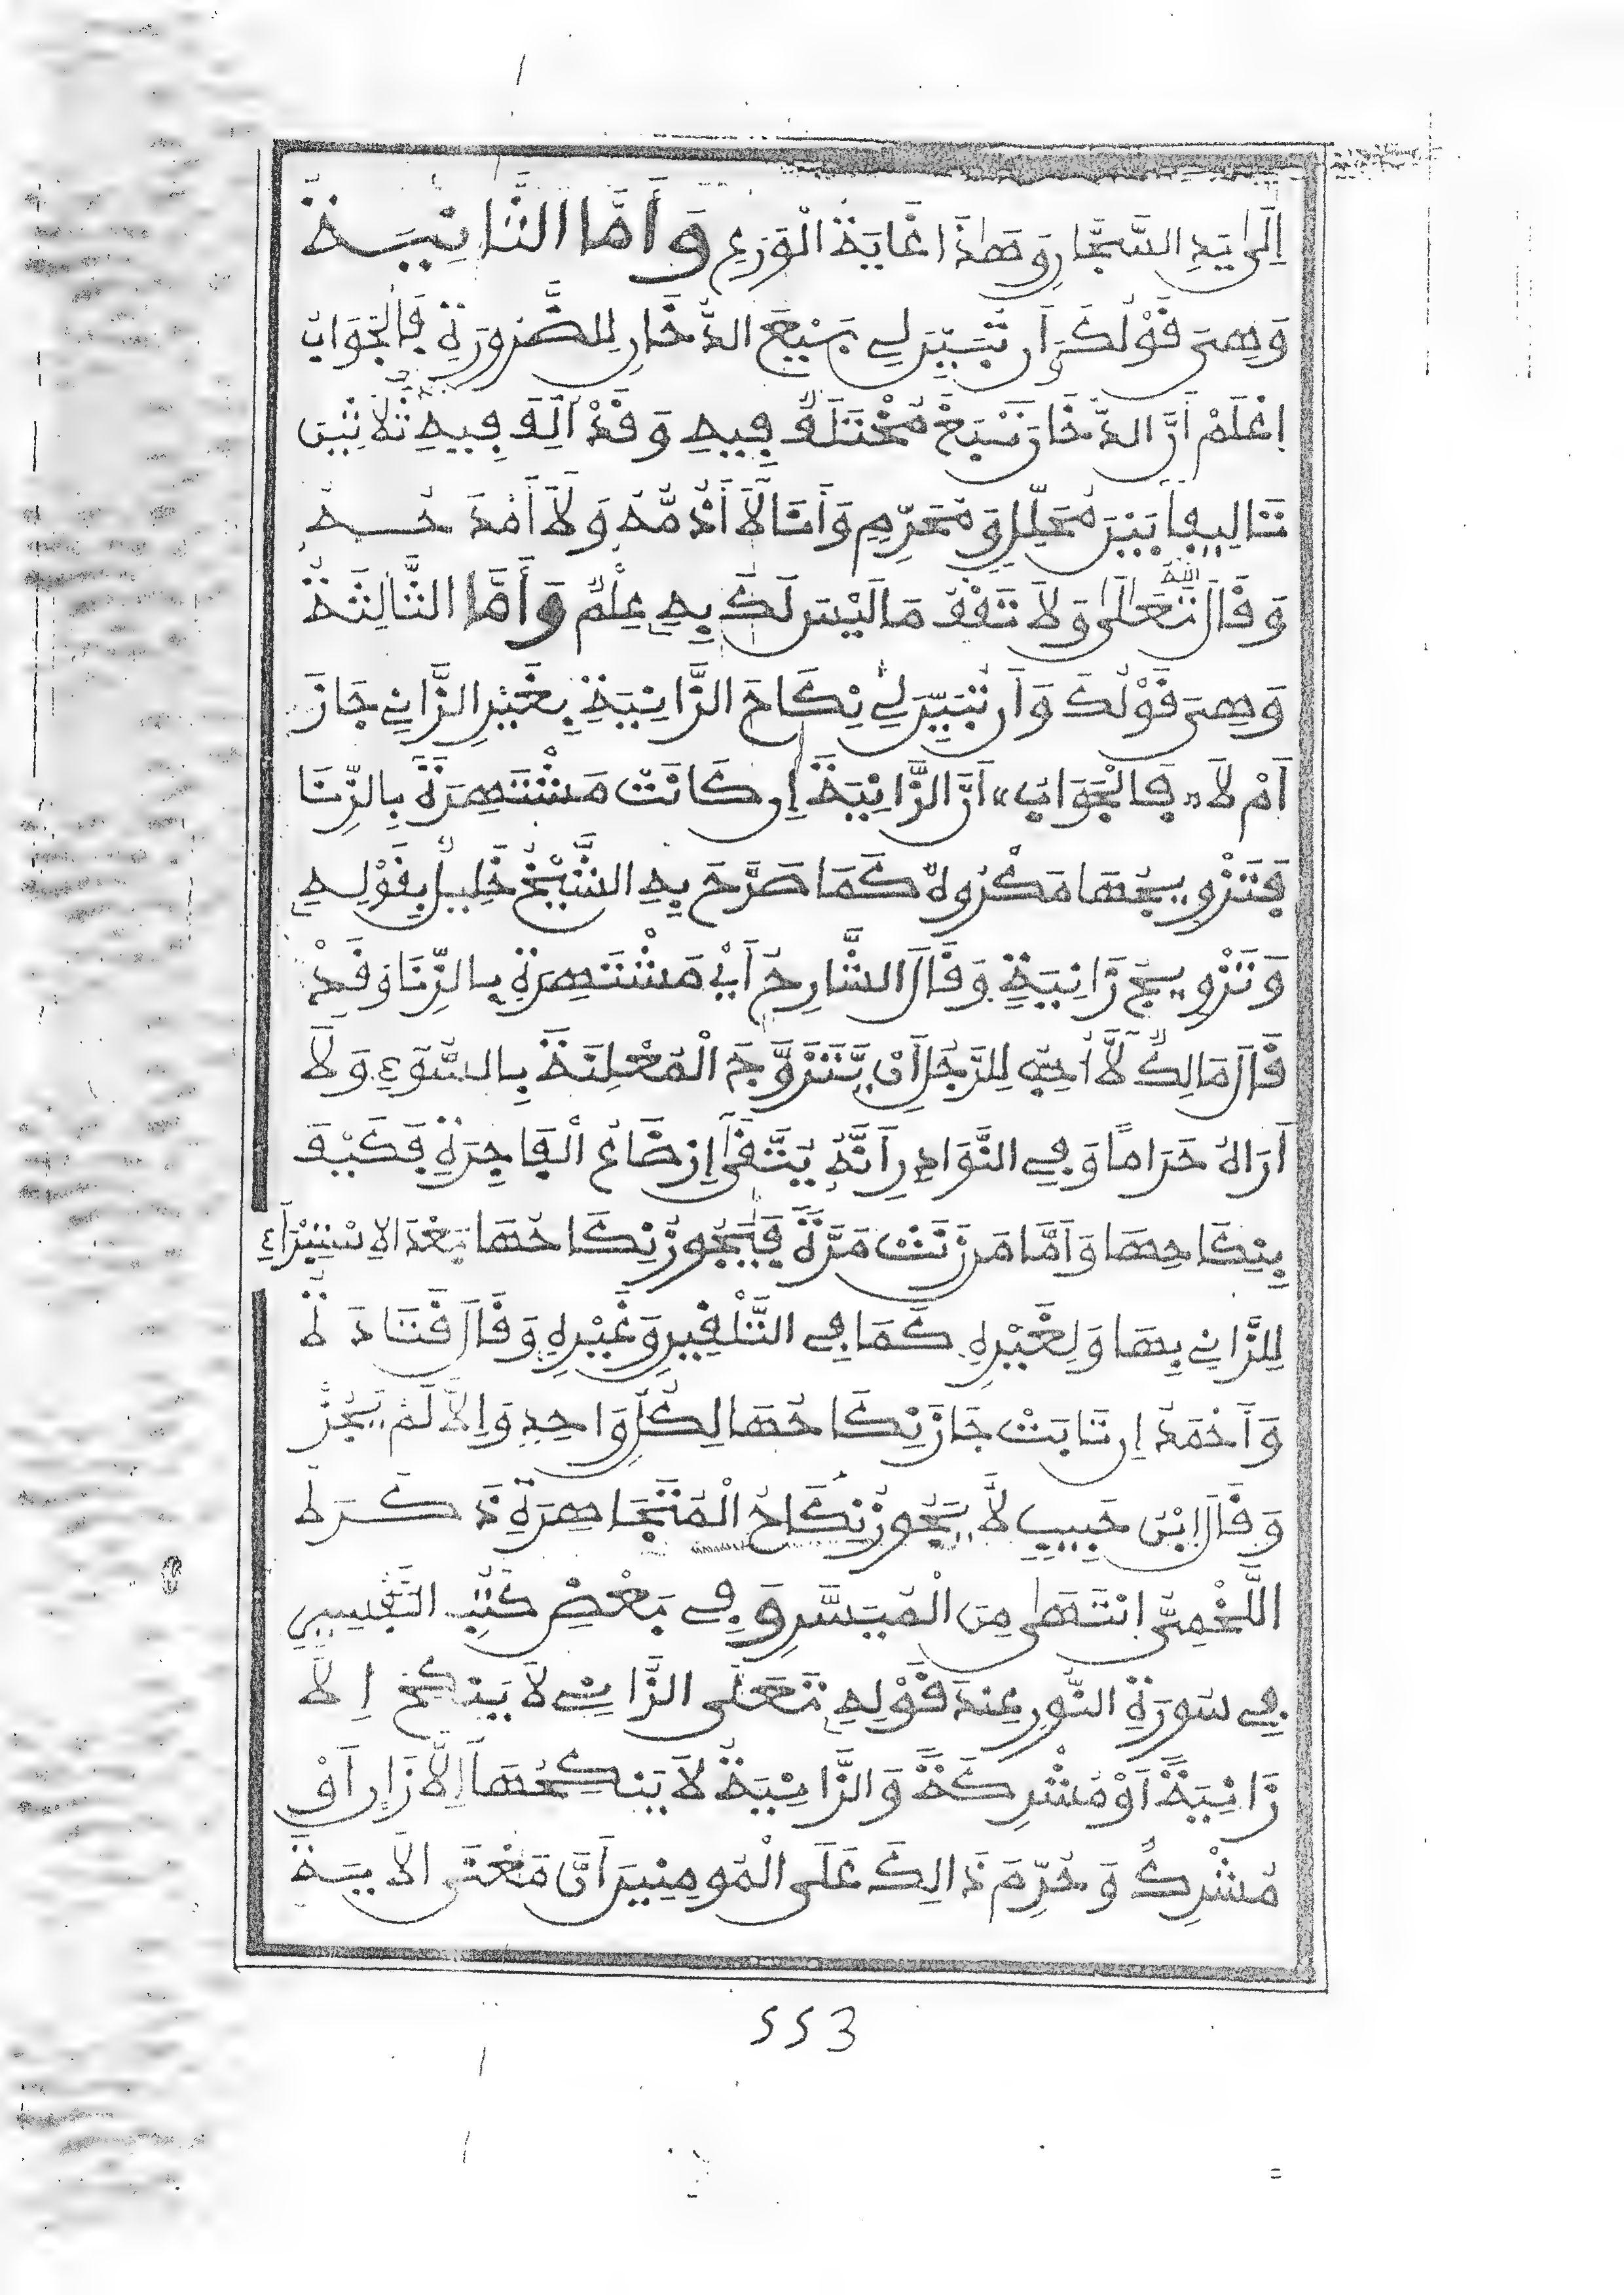 إِلَىٰ يَدِ السَّجَّارِ وَهَٰذَا غَايَةُ الْوَرَعِ وَأَمَّا الثَّانِيَةُ
وَهِىَ قَوْلُكَ وَأَن تُبَيِّنَ لِي بَيْعَ الدُّخَانِ لِلضَّرُورَةِ فَالْجَوَابُ
اِعْلَمْ أَنَّ الدُّخَانَ تَبْغَ مُخْتَلَفٌ فِيهِ وَقَدْ أُلِّفَ فِيهِ ثَلَاثِينَ
تَالِيفاً بَيْنَ مُحَلِّلٍ وَمُحَرِّمٍ وَأَنَا لَا أَذُمُّهُ وَلَا أَمْدَحُهُ
وَقَالَ اللهُ تَعَالَىٰ وَلَا تَقْفُ مَا لَيْسَ لَكَ بِهِ عِلْمٌ وَأَمَّا الثَّالِثَةُ
وَهِىَ قَوْلُكَ وَأَن تُبَيِّنَ لِي نِكَاحَ الزَّانِيَةِ بِغَيْرِ الزَّانِي جَازَ
أَمْ لَا « فَالْجَوَابُ » أَنَّ الزَّانِيَةَ إِن كَانَتْ مَشْتَهِرَةً بِالزِّنَا
فَتَزْوِيجُهَا مَكْرُوهٌ كَمَا صَرَّحَ بِهِ الشَّيْخُ خَلِيلٌ بِقَوْلِهِ
وَتَزْوِيجُ زَانِيَةٍ وَقَالَ الشَّارِحُ أَيْ مَشْتَهِرَةٍ بِالزِّنَا وَقَدْ
قَالَ مَالِكٌ لَّا أُحِبُّ لِلرَّجُلِ أَنْ يَّتَزَوَّجَ الْمُعْلِنَةَ بِالسُّوءِ وَلَا
أَرَاهُ حَرَاماً وَفِي النَّوَادِرِ أَنَّهُ يُتَّقَىٰ إِرْضَاعُ الْفَاجِرَةِ فَكَيْفَ
بِنِكَاحِهَا وَأَمَّا مَن زَنَتْ مَرَّةً فَيَجُوزُ نِكَاحُهَا بَعْدَ الِاسْتِبْرَاءِ
لِلزَّانِي بِهَا وَلِغَيْرِهِ كَمَا فِي التَّلْقِينِ وَغَيْرِهِ وَقَالَ قَتَادَةُ
وَأَحْمَدُ إِن تَابَتْ جَازَ نِكَاحُهَا لِكُلِّ وَاحِدٍ وَإِلَّا لَمْ يَجُزْ
وَقَالَ ابْنُ حَبِيبٍ لَّا يَجُوزُ نِكَاحُ الْمُتَجَاهِرَةِ ذَكَرَهُ
اللَّخْمِىُّ انْتَهَىٰ مِنَ الْمُيَسَّرِ وَفِي بَعْضِ كُتُبِ التَّفْسِيرِ
فِي سُورَةِ النُّورِ عِندَ قَوْلِهِ تَعَلَى الزَّانِي لَا يَنكِحُ إِلَّا
زَانِيَةً أَوْ مُشْرِكَةً وَالزَّانِيَةُ لَا يَنكِحُهَا إِلَّا زَانٍ أَوْ
مُشْرِكٌ وَحُرِّمَ ذَالِكَ عَلَى الْمُومِنِينَ أَنَّ مَعْنَى الْآيَةِ
553